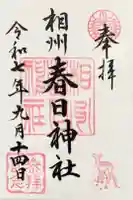 奉拝
相州
春日神社
令和七年九月十四日